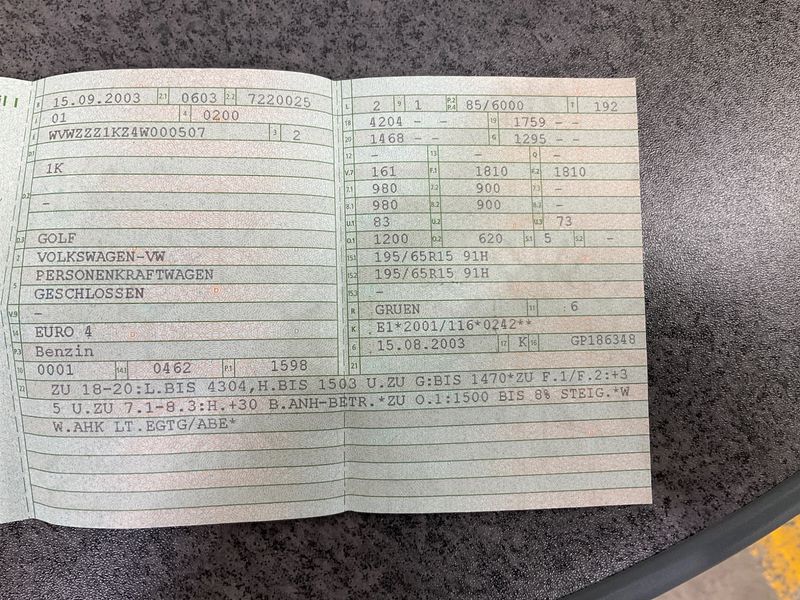 B 15.09.2003 2.1 0603 2.2 7220025
J 01 4 0200
E WVWZZZ1KZ4W000507 3 2
D.1
1K
D.2
–
D.3 GOLF
2 VOLKSWAGEN-VW
5 PERSONENKRAFTWAGEN
GESCHLOSSEN
V.9 –
14 EURO 4
P.3 Benzin
10 0001 14.1 0462 P.1 1598
L 2 9 1 P.2 P.4 85/6000 T 192
18 4204 – – 19 1759 – –
20 1468 – – G 1295 – –
12 – 13 – Q –
V.7 161 F.1 1810 F.2 1810
7.1 980 7.2 900 7.3 –
8.1 980 8.2 900 8.3 –
U.1 83 U.2 U.3 73
O.1 1200 O.2 620 S.1 5 S.2 –
15.1 195/65R15 91H
15.2 195/65R15 91H
15.3 –
R GRUEN 11 6
K E1*2001/116*0242**
6 15.08.2003 17 K 16 GP186348
21
22 ZU 18-20:L.BIS 4304,H.BIS 1503 U.ZU G:BIS 1470*ZU F.1/F.2:+3
5 U.ZU 7.1-8.3:H.+30 B.ANH-BETR.*ZU O.1:1500 BIS 8% STEIG.*W
W.AHK LT.EGTG/ABE*